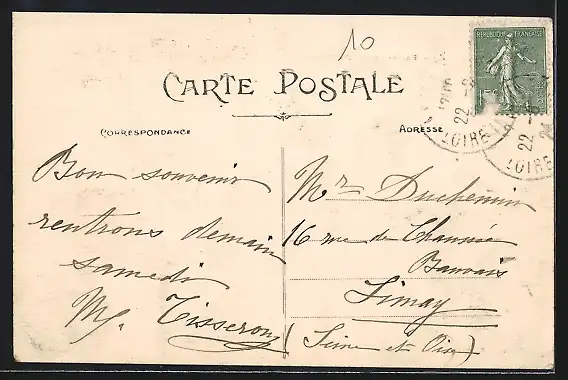 10
RÉPUBLIQUE FRANÇAISE
CARTE POSTALE
CORRESPONDANCE
ADRESSE
22
LOIRE
22
LOIRE
Bon souvenir
rentrons demain
samedi
Tisseron
Mr Duchemin
16 rue de
Limay
(Seine et Oise)